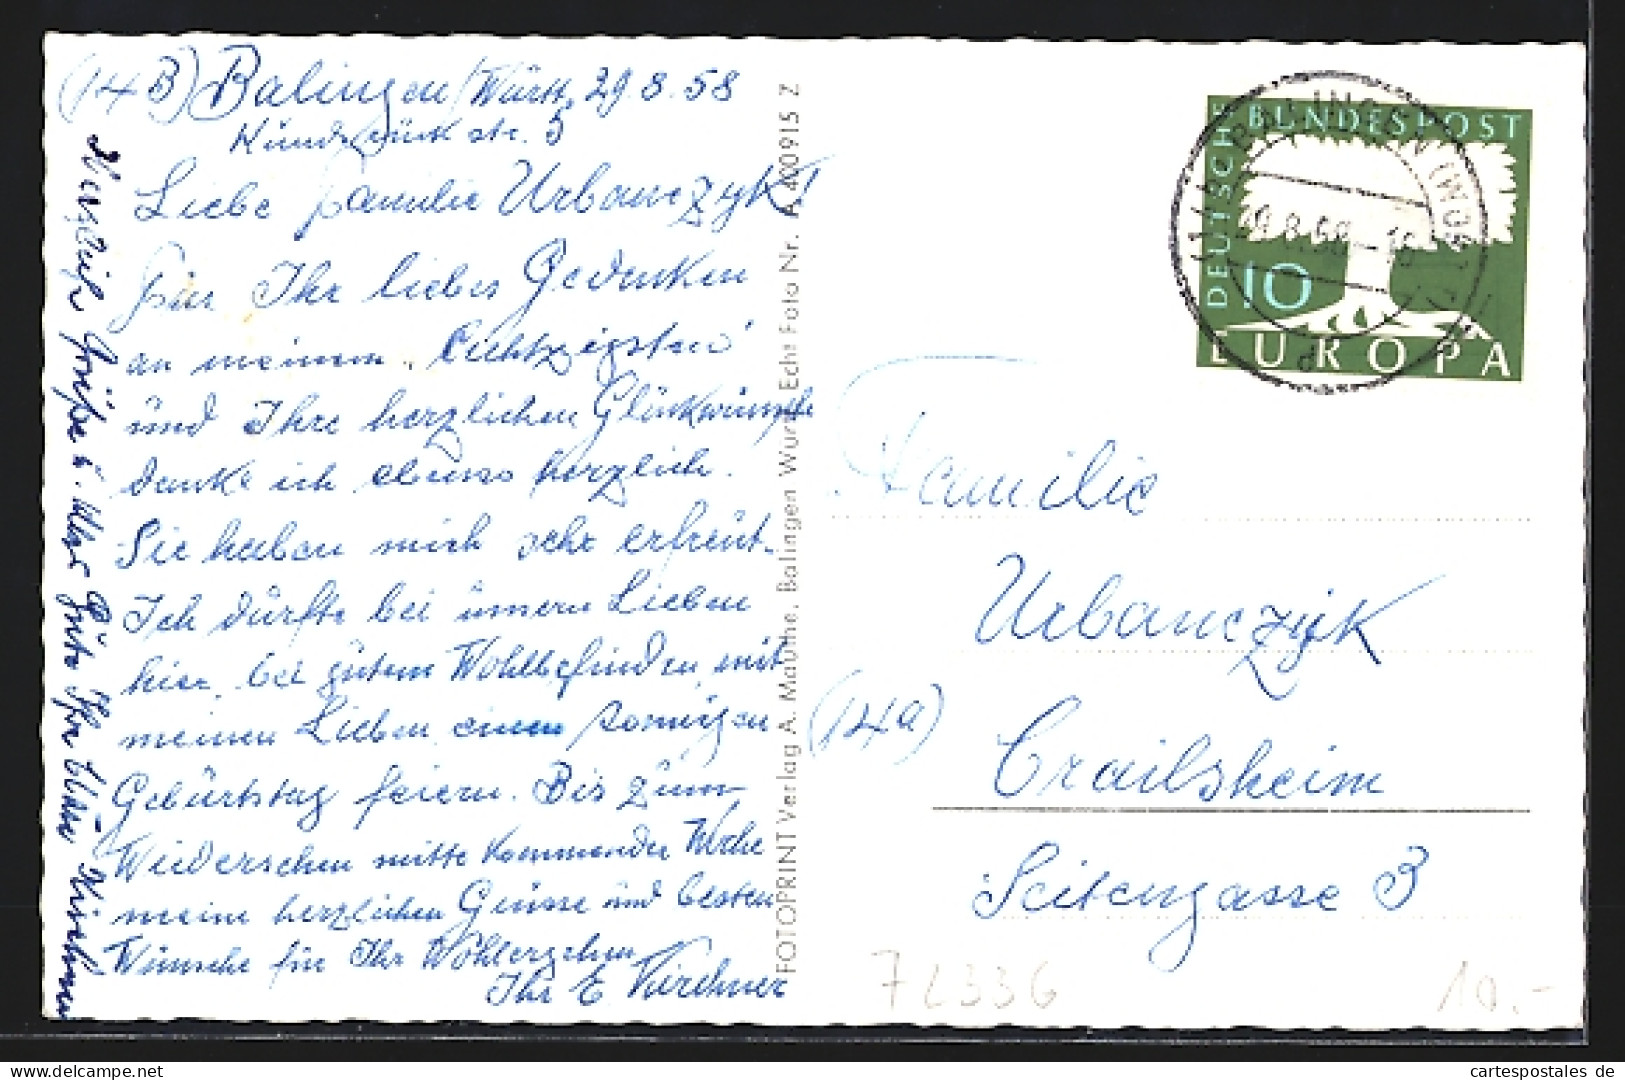 (14B) Balingen/Württ. 29.8.58
str. 5
Liebe Familie Urbanczyk!
Für Ihr liebes Gedenken
an meinem „Achtzigsten"
und Ihre herzlichen Glückwünsche
danke ich ebenso herzlich.
Sie haben mich sehr erfreut.
Ich dürfte bei unsern Lieben
hier, bei gutem Wohlbefinden, mit
meinen Lieben einen sonnigen
Geburtstag feiern. Bis zum
Wiedersehen mitte kommender Woche
meine herzlichen Grüsse und besten
Wünsche für Ihr Wohlergehen
Ihr E. Kirchner
Herzliche Grüße u. alles Gute Ihre Kirchner
FOTOPRINT Verlag A. Mauthe, Balingen Württ. Echt Foto Nr. A 400915 Z
DEUTSCHE BUNDESPOST
10
EUROPA
BALINGEN (WÜRTT)
29.8.58-18
Familie
Urbanczyk
(14a) Crailsheim
Seitengasse 3
72336
10.-
cartespostales de